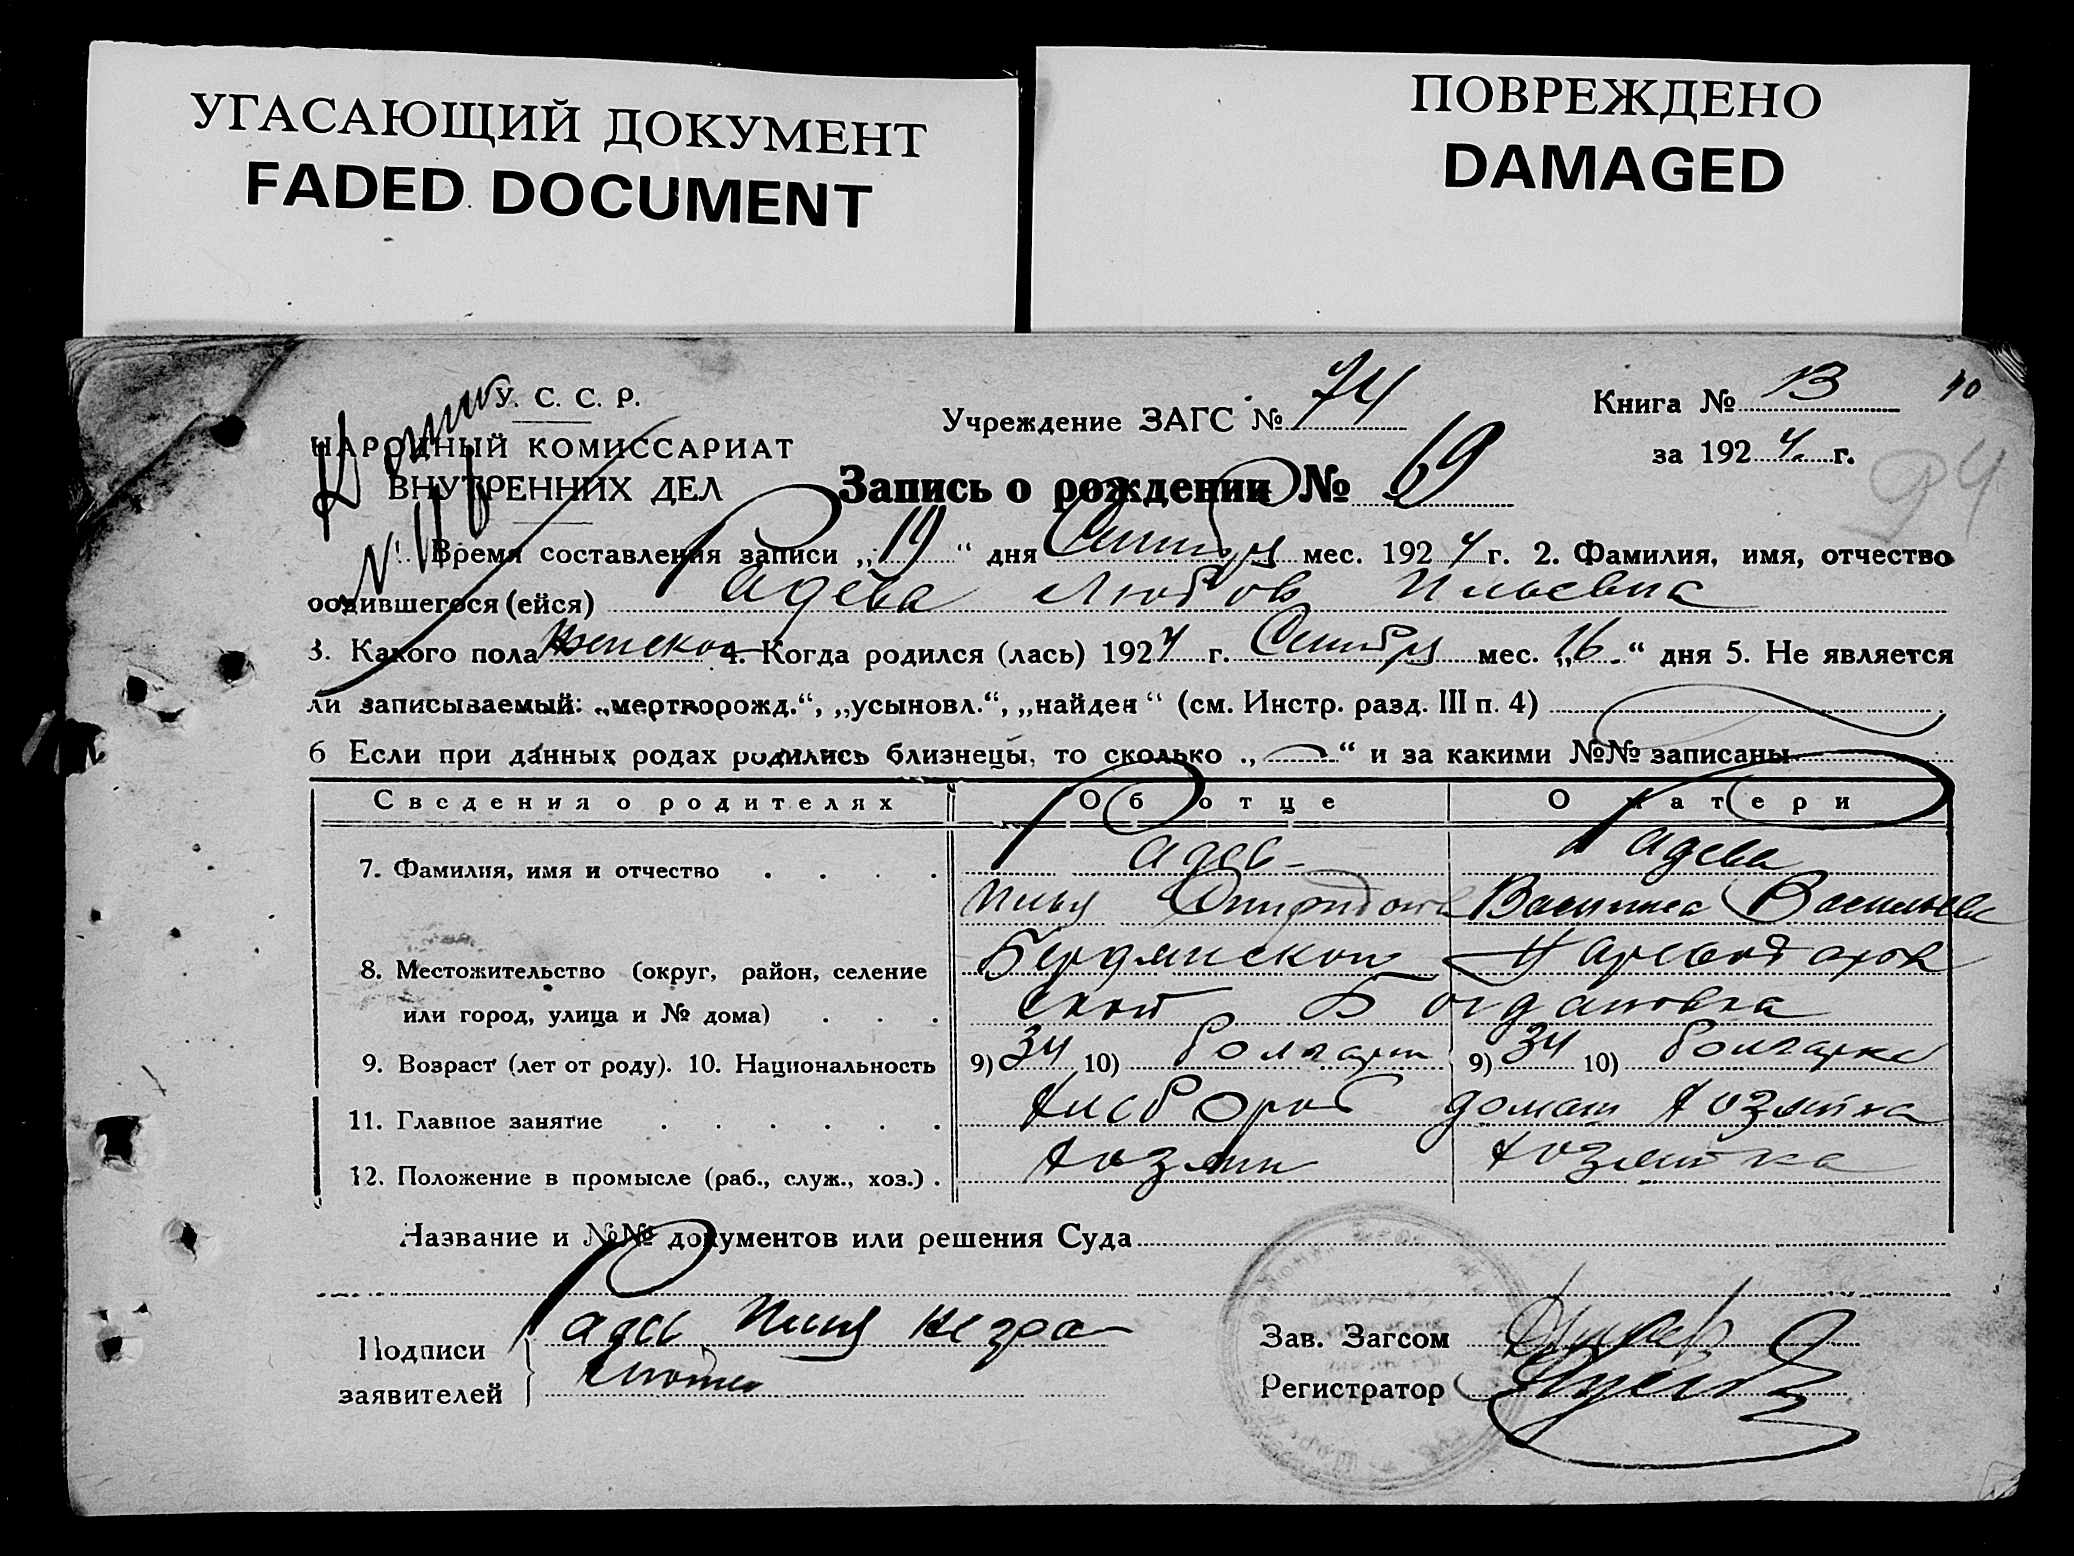 УГАСАЮЩИЙ ДОКУМЕНТ
FADED DOCUMENT
ПОВРЕЖДЕНО
DAMAGED
У. С. С. Р.
НАРОДНЫЙ КОМИССАРИАТ
ВНУТРЕННИХ ДЕЛ
Учреждение ЗАГС № 74
Книга № 13
за 1924 г.
40
94
Запись о рождении № 69
Время составления записи „19“ дня Сентября мес. 1924 г. 2. Фамилия, имя, отчество
родившегося (ейся) Радева Любов Ильевна
3. Какого пола женского 4. Когда родился (лась) 1924 г. Сентября мес. „16.“ дня 5. Не является
ли записываемый: „мертворожд.“, „усыновл.“, „найден“ (см. Инстр. разд. III п. 4)
6 Если при данных родах родились близнецы, то сколько „—“ и за какими №№ записаны
Сведения о родителях Об отце О матери
7. Фамилия, имя и отчество . . . . Радев Радева
Илья Спиридонов Васильева
8. Местожительство (округ, район, селение Бердянского Царевод
или город, улица и № дома) . . . ской Богдановка
9. Возраст (лет от роду). 10. Национальность 9) 34 10) болгарин 9) 34 10) болгарка
11. Главное занятие . . . . . . Хлебороб домаш хозяйка
12. Положение в промысле (раб., служ., хоз.) . хозяин хозяйка
Название и №№ документов или решения Суда
Подписи
заявителей
Радев Илья негра
мотный
Зав. Загсом
Регистратор